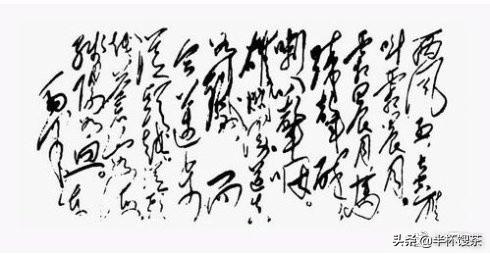 西风烈长空雁
叫霜晨月。
霜晨月馬
蹄声碎
喇叭声咽。
雄关漫道真
如铁而
今迈步
从头越从头
越苍山如海
残阳如血。
头条 @半杯馊茶